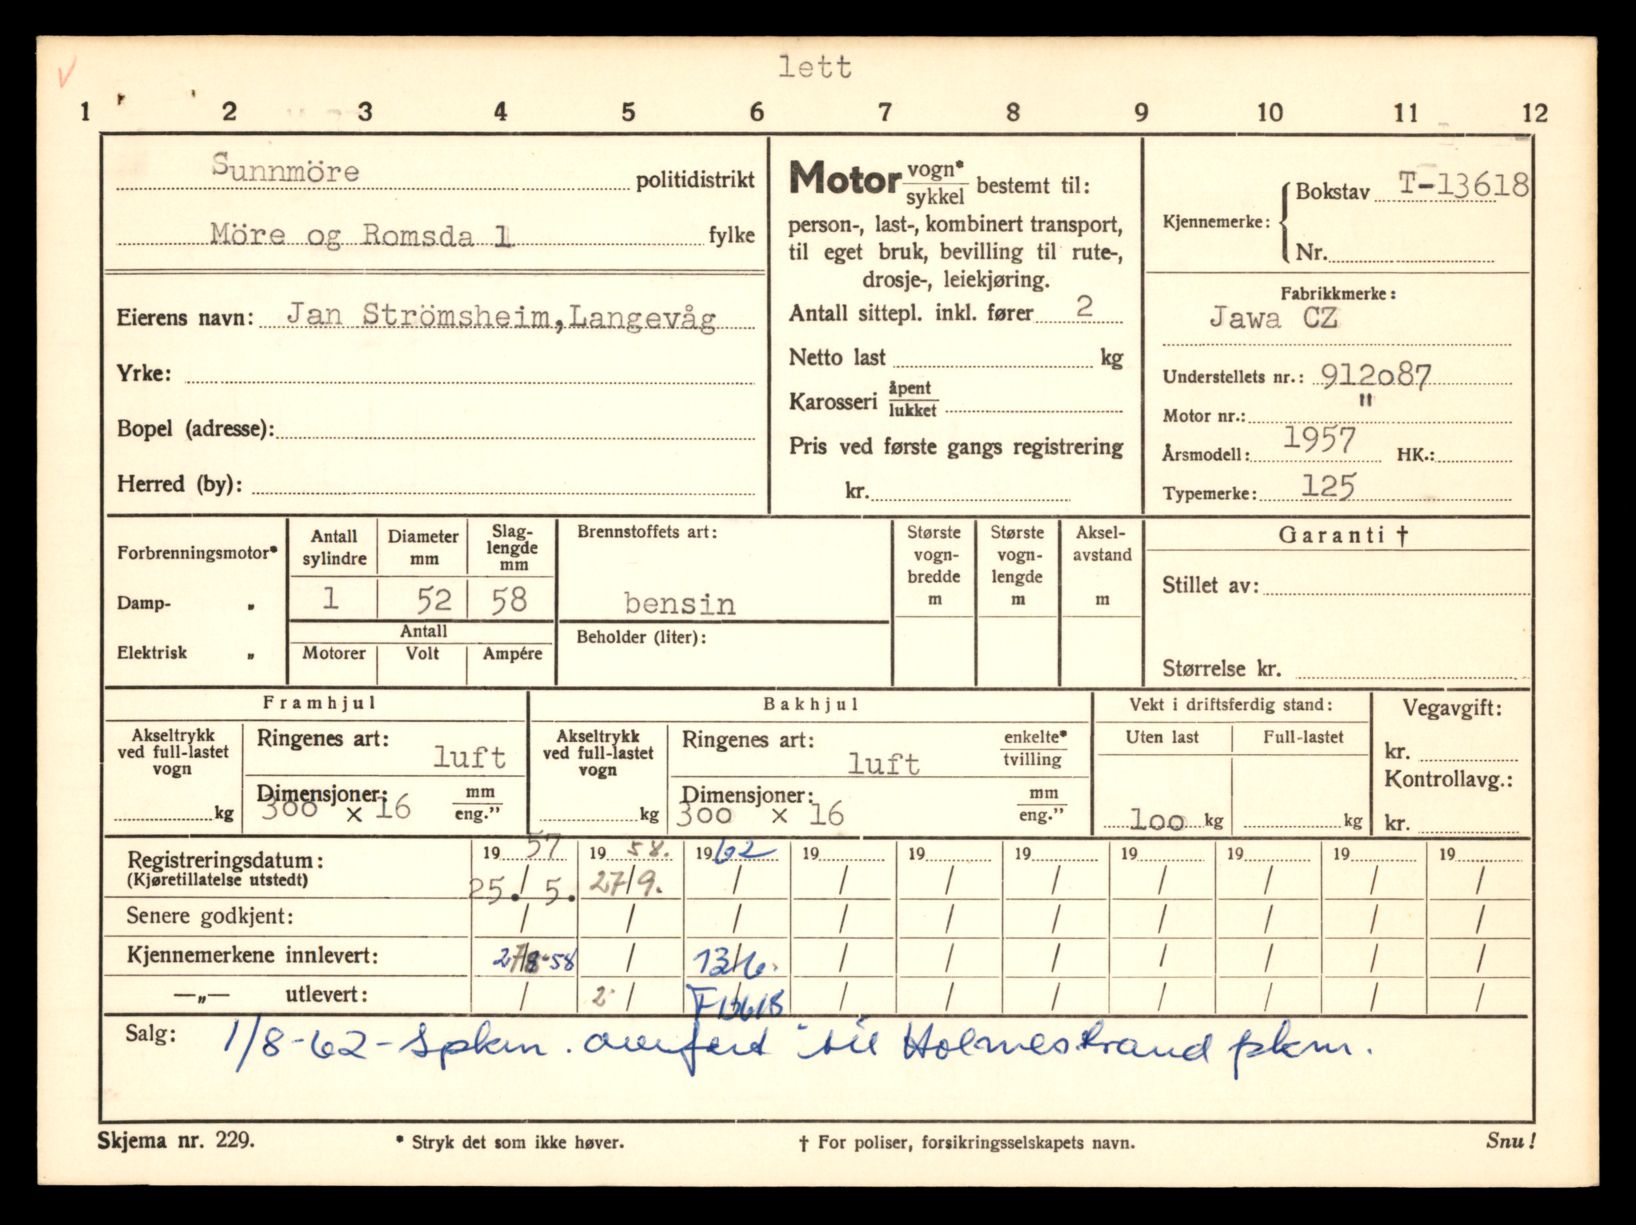 lett
1 2 3 4 5 6 7 8 9 10 11 12
Sunnmöre politidistrikt
Möre og Romsda l fylke
Eierens navn: Jan Strömsheim, Langevåg
Yrke:
Bopel (adresse):
Herred (by):
Motor vogn*
sykkel bestemt til:
person-, last-, kombinert transport,
til eget bruk, bevilling til rute-,
drosje-, leiekjøring.
Antall sittepl. inkl. fører 2
Netto last kg
Karosseri åpent
lukket
Pris ved første gangs registrering
kr.
Kjennemerke: Bokstav T-13618
Nr.
Fabrikkmerke:
Jawa CZ
Understellets nr.: 912o87
Motor nr.: "
Årsmodell: 1957 HK.:
Typemerke: 125
Forbrenningsmotor*
Damp- "
Elektrisk "
Antall sylindre
Diameter mm
Slag-lengde mm
1 52 58
Antall
Motorer Volt Ampére
Brennstoffets art:
bensin
Beholder (liter):
Største vogn-bredde m
Største vogn-lengde m
Aksel-avstand m
Garanti †
Stillet av:
Størrelse kr.
Framhjul
Akseltrykk
ved full-lastet
vogn
kg
Ringenes art:
luft
Dimensjoner: mm
300 x 16 eng."
Bakhjul
Akseltrykk
ved full-lastet
vogn
kg
Ringenes art: enkelte*
luft tvilling
Dimensjoner: mm
300 x 16 eng."
Vekt i driftsferdig stand:
Uten last Full-lastet
loo kg kg
Vegavgift:
kr.
Kontrollavg.:
kr.
Registreringsdatum: 19 57 19 58. 19 62 19 19 19 19 19 19 19
(Kjøretillatelse utstedt) 25./ 5. 27/9. / / / / / / / /
Senere godkjent: / / / / / / / / / /
Kjennemerkene innlevert: 27/8-58 / 13/6. / / / / / / /
—„— utlevert: / 2 / T13618 / / / / / / /
Salg: 1/8-62 - Spkm. overført til Holmestrand pkm.
Skjema nr. 229. * Stryk det som ikke høver. † For poliser, forsikringsselskapets navn. Snu!